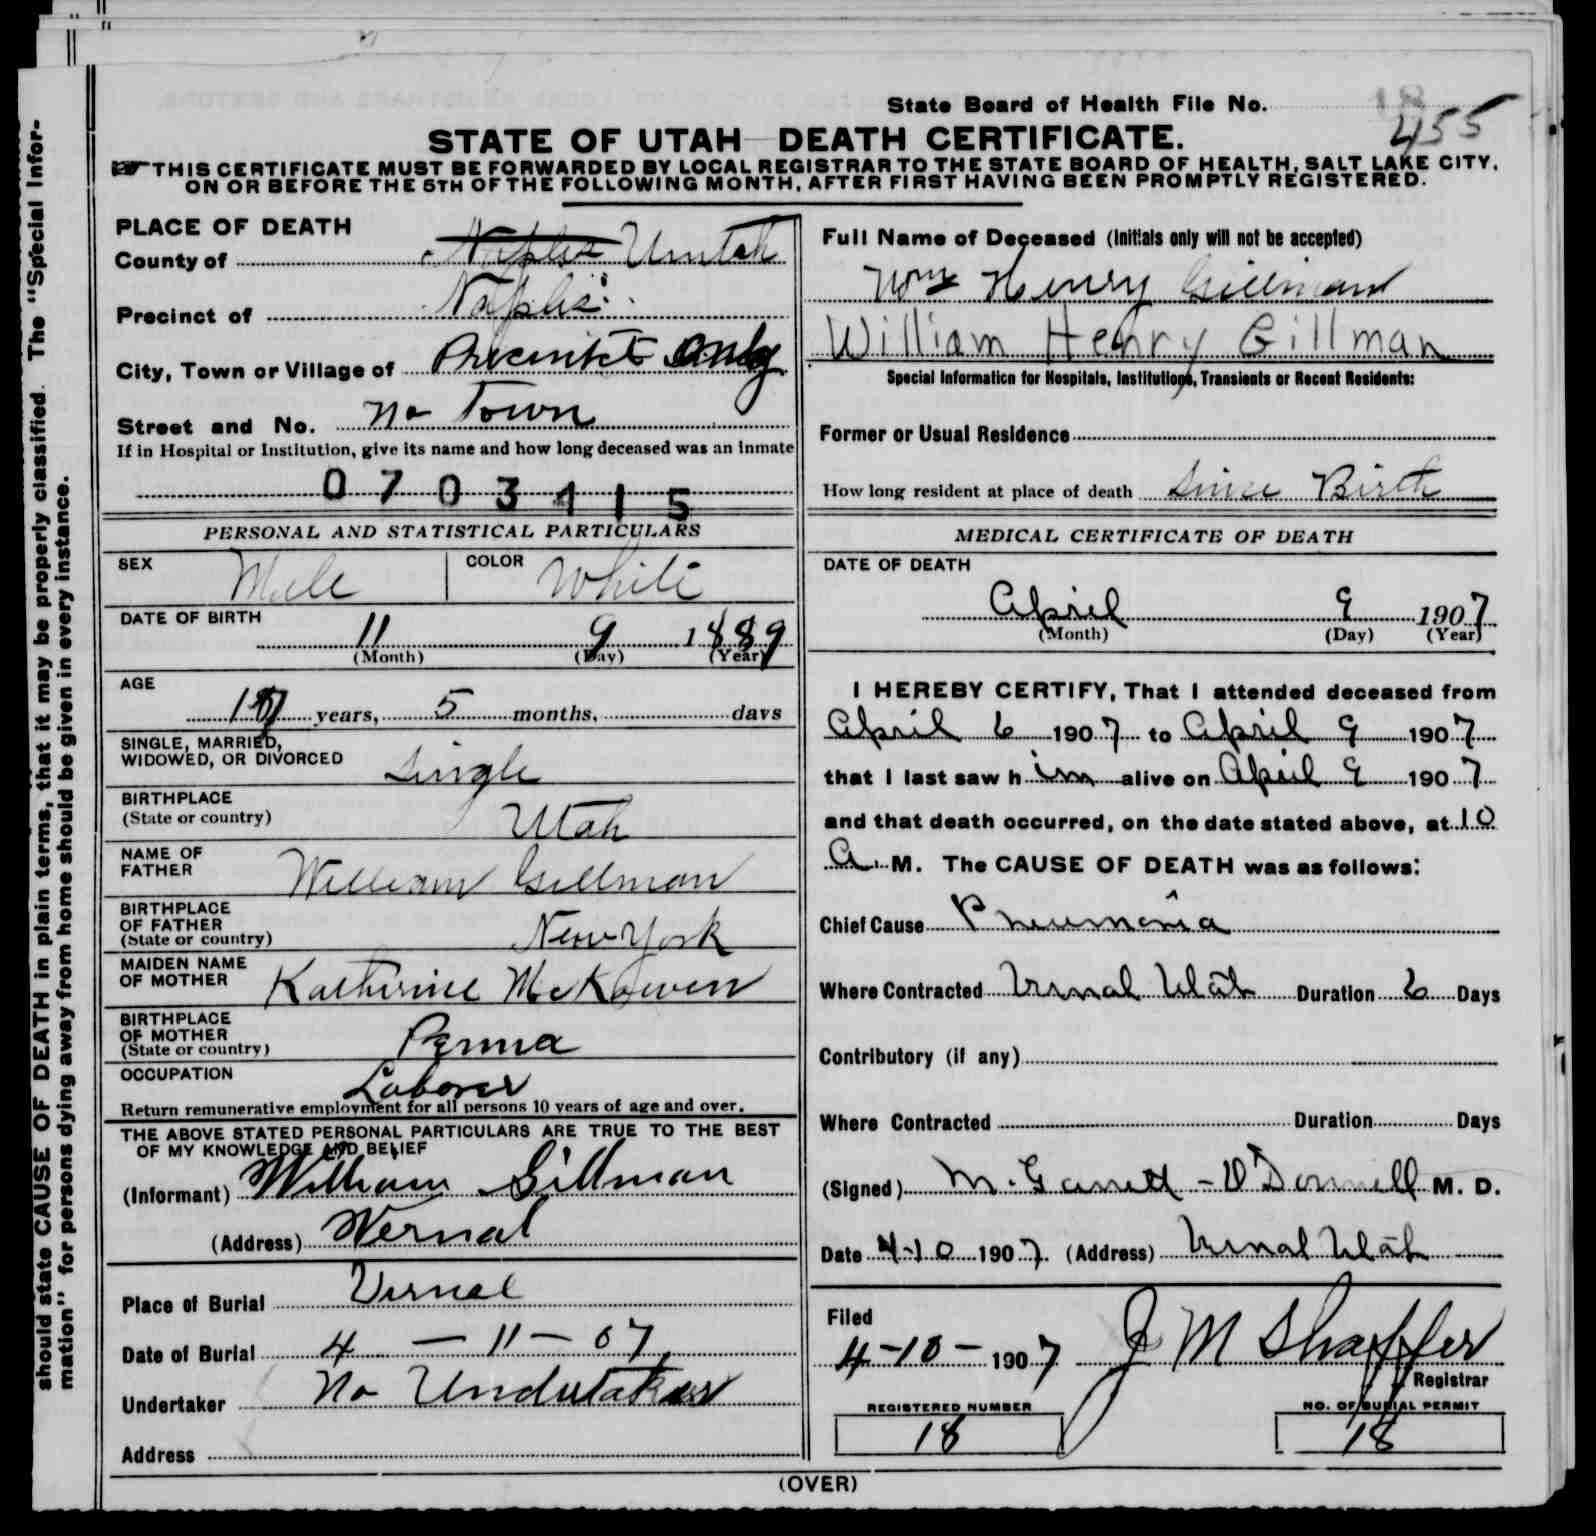 State Board of Health File No. 18
455
STATE OF UTAH DEATH CERTIFICATE.
THIS CERTIFICATE MUST BE FORWARDED BY LOCAL REGISTRAR TO THE STATE BOARD OF HEALTH, SALT LAKE CITY,
ON OR BEFORE THE 5TH OF THE FOLLOWING MONTH, AFTER FIRST HAVING BEEN PROMPTLY REGISTERED.
should state CAUSE OF DEATH in plain terms, that it may be properly classified. The "Special Infor-
mation" for persons dying away from home should be given in every instance.
PLACE OF DEATH
County of Naples Uintah
Precinct of Naples
City, Town or Village of Precinct Only
Street and No. No Town
If in Hospital or Institution, give its name and how long deceased was an inmate
0703415
PERSONAL AND STATISTICAL PARTICULARS
SEX Male COLOR White
DATE OF BIRTH
11 9 1889
(Month) (Day) (Year)
AGE
17 years, 5 months, days
SINGLE, MARRIED,
WIDOWED, OR DIVORCED Single
BIRTHPLACE
(State or country) Utah
NAME OF
FATHER William Gillman
BIRTHPLACE
OF FATHER
(State or country) New York
MAIDEN NAME
OF MOTHER Katherine McKowen
BIRTHPLACE
OF MOTHER
(State or country) Penna
OCCUPATION Laborer
Return remunerative employment for all persons 10 years of age and over.
THE ABOVE STATED PERSONAL PARTICULARS ARE TRUE TO THE BEST
OF MY KNOWLEDGE AND BELIEF
(Informant) William Gillman
(Address) Vernal
Place of Burial Vernal
Date of Burial 4 - 11 - 07
Undertaker No Undertaker
Address
Full Name of Deceased (Initials only will not be accepted)
Wm Henry Gillman
William Henry Gillman
Special Information for Hospitals, Institutions, Transients or Recent Residents:
Former or Usual Residence
How long resident at place of death Since Birth
MEDICAL CERTIFICATE OF DEATH
DATE OF DEATH
April 9 1907
(Month) (Day) (Year)
I HEREBY CERTIFY, That I attended deceased from
April 6 1907 to April 9 1907
that I last saw him alive on April 9 1907
and that death occurred, on the date stated above, at 10
A. M. The CAUSE OF DEATH was as follows:
Chief Cause Pneumonia
Where Contracted Vernal Utah Duration 6 Days
Contributory (if any)
Where Contracted Duration Days
(Signed) M. Garrett - O'Donnell M. D.
Date 4-10 1907. (Address) Vernal Utah
Filed
4-10-1907 J M Shaffer
Registrar
REGISTERED NUMBER
18
NO. OF BURIAL PERMIT
18
(OVER)